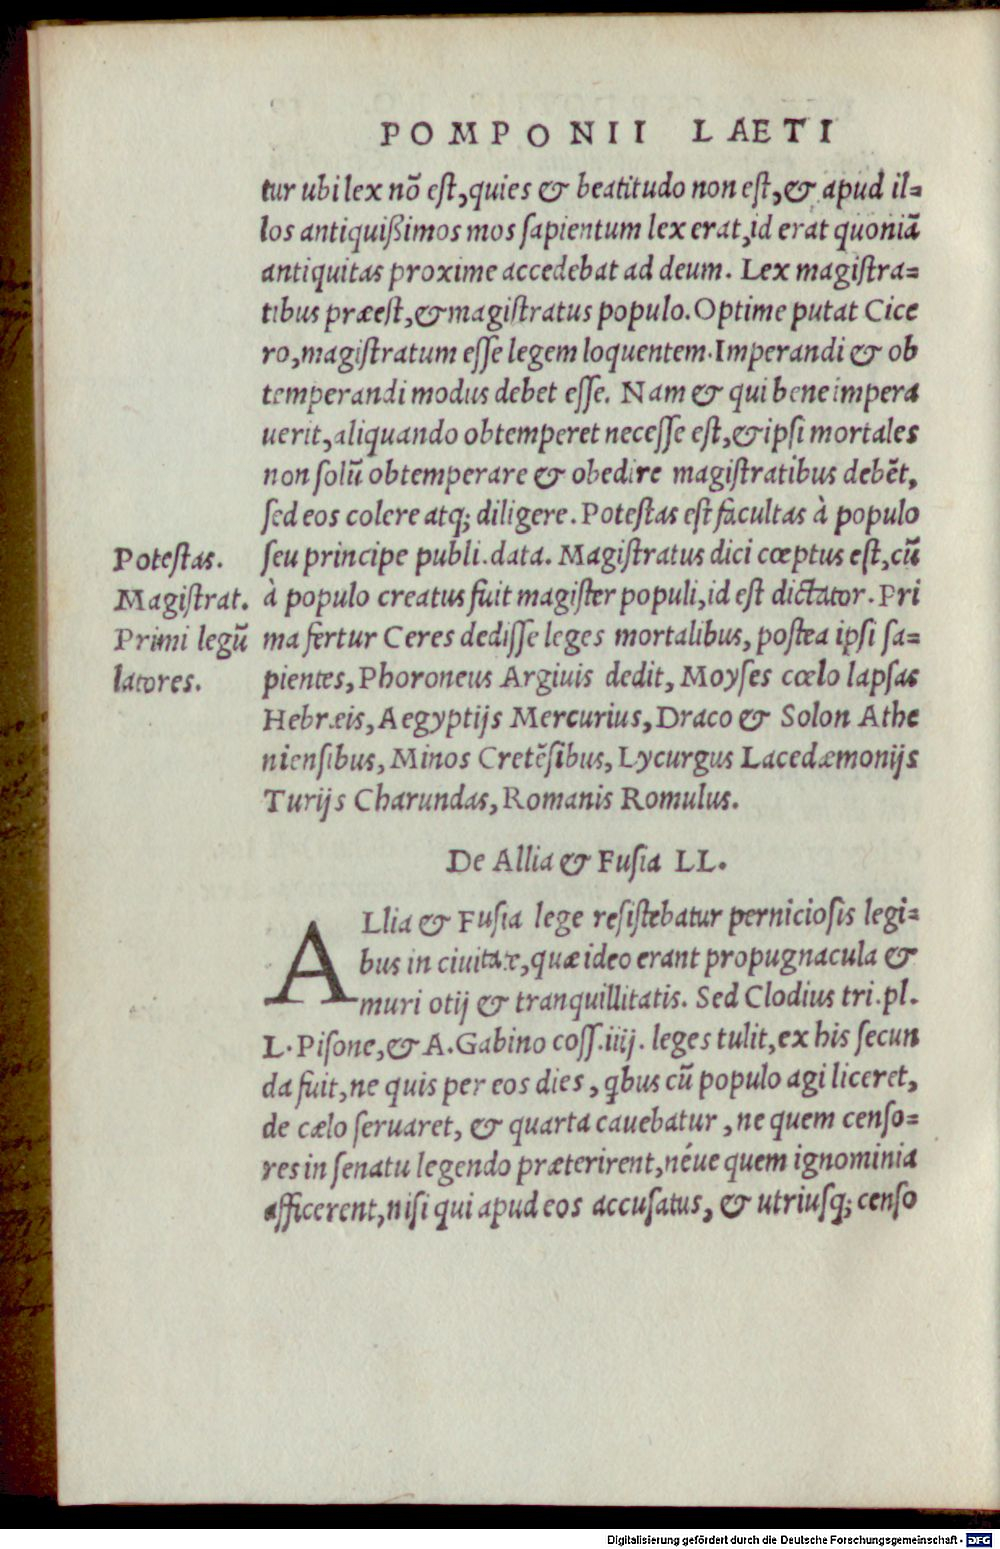 POMPONII LAETI
tur ubi lex nō est, quies & beatitudo non est, & apud il=
los antiquißimos mos sapientum lex erat, id erat quoniā
antiquitas proxime accedebat ad deum. Lex magistra=
tibus præest, & magistratus populo. Optime putat Cice
ro, magistratum esse legem loquentem. Imperandi & ob
temperandi modus debet esse. Nam & qui bene impera
uerit, aliquando obtemperet necesse est, & ipsi mortales
non solū obtemperare & obedire magistratibus debēt,
sed eos colere atq; diligere. Potestas est facultas à populo
Potestas. seu principe publi. data. Magistratus dici cœptus est, cū
Magistrat. à populo creatus fuit magister populi, id est dictator. Pri
Primi legū ma fertur Ceres dedisse leges mortalibus, postea ipsi sa=
latores. pientes, Phoroneus Argiuis dedit, Moyses cœlo lapsas
Hebræis, Aegyptijs Mercurius, Draco & Solon Athe
niensibus, Minos Cretēsibus, Lycurgus Lacedæmonijs
Turijs Charundas, Romanis Romulus.
De Allia & Fusia LL.
ALlia & Fusia lege resistebatur perniciosis legi=
bus in ciuitate, quæ ideo erant propugnacula &
muri otij & tranquillitatis. Sed Clodius tri. pl.
L. Pisone, & A. Gabino coss. iiij. leges tulit, ex his secun
da fuit, ne quis per eos dies, qbus cū populo agi liceret,
de cælo seruaret, & quarta cauebatur, ne quem censo=
res in senatu legendo præterirent, néue quem ignominia
afficerent, nisi qui apud eos accusatus, & utriusq; censo
Digitalisierung gefördert durch die Deutsche Forschungsgemeinschaft - DFG